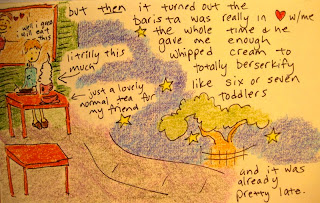 but then it turned out the
barista was really in ♥ w/me
the whole time & he
gave me enough
whipped cream to
totally berserkify
like six or seven
toddlers
litrilly this
much
just a lovely
normal tea for
my friend
and it was
already
pretty late.